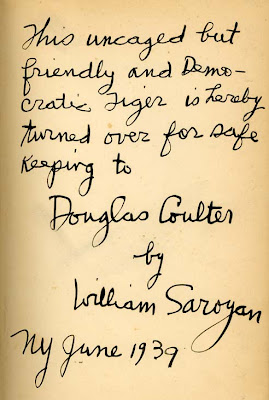 This uncaged but
friendly and Demo-
cratic Tiger is hereby
turned over for safe
keeping to
Douglas Coulter
by
William Saroyan
NY June 1939